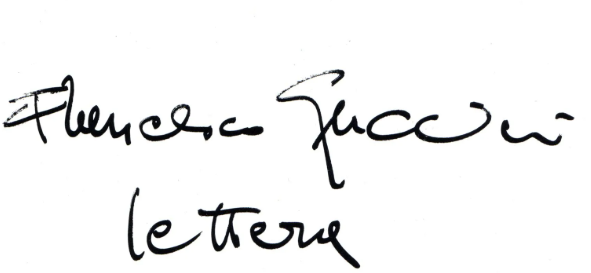 Francesco Guccini
lettera